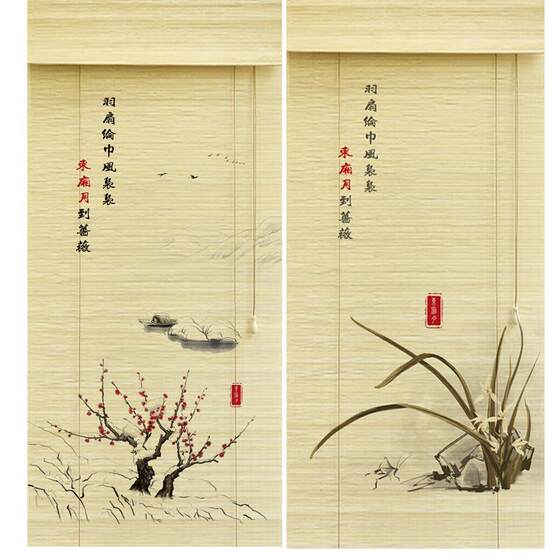 羽扇綸巾風裊裊
東廂月到薔薇
羽扇綸巾風裊裊
東廂月到薔薇